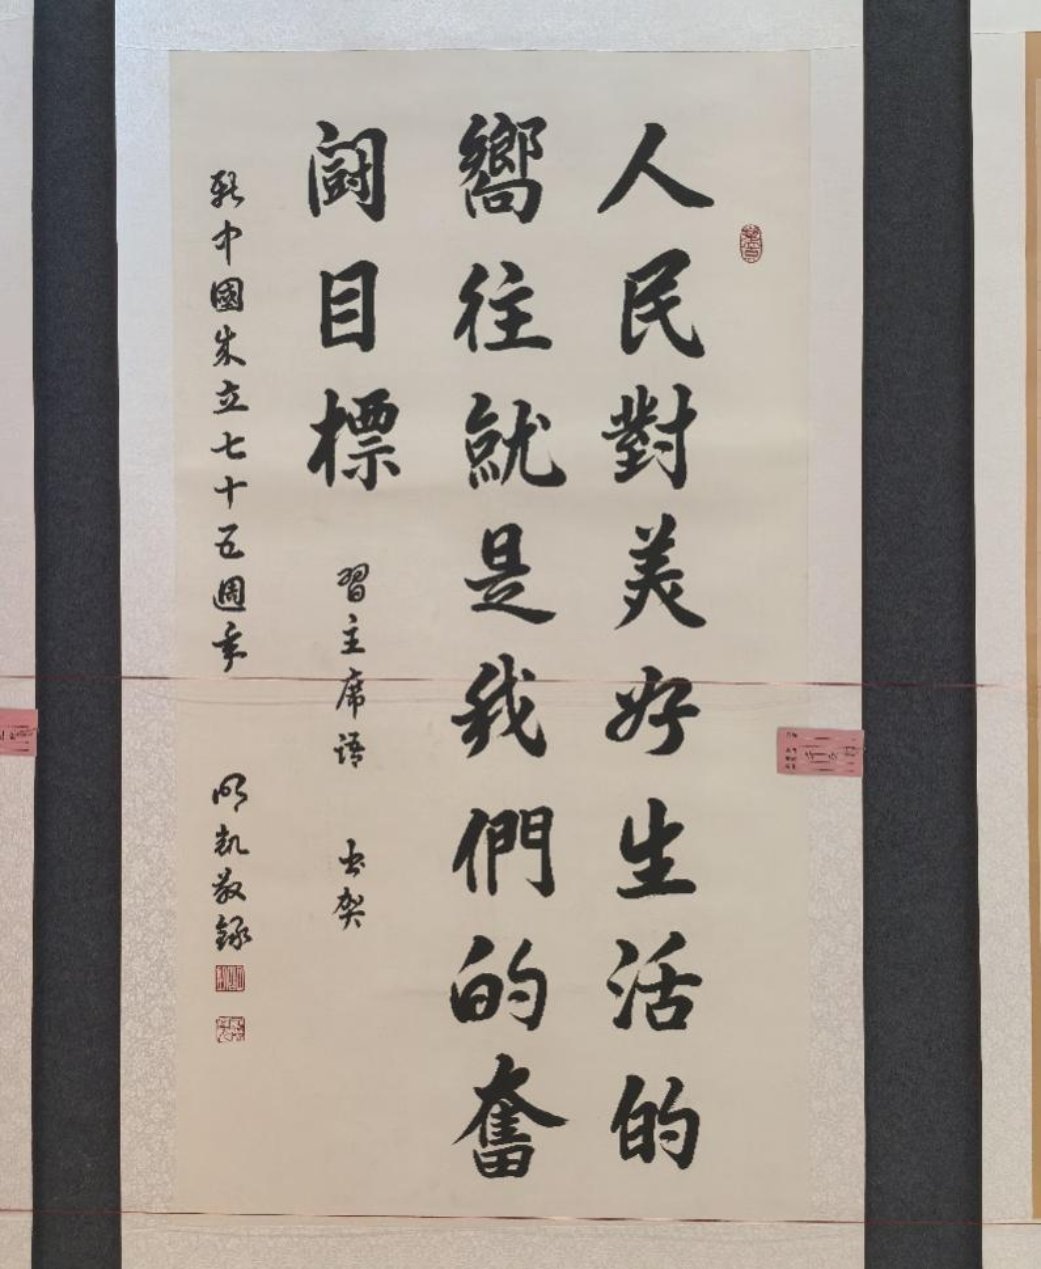 人民對美好生活的
嚮往就是我們的奮
鬪目標
習主席語 書契
新中國成立七十五週年
明凱敬錄